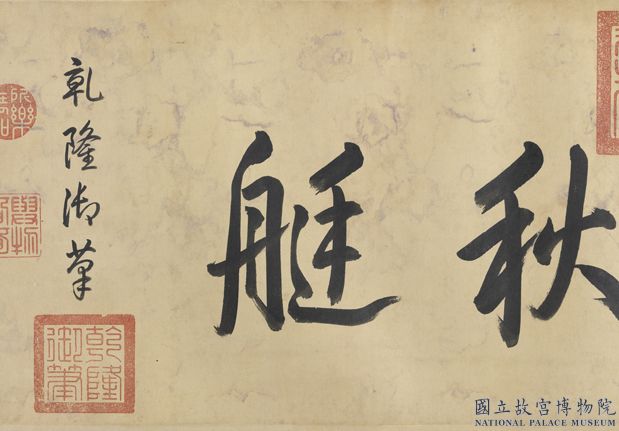 秋艇
乾隆御筆
乾隆御筆
所樂在
國立故宮博物院
NATIONAL PALACE MUSEUM